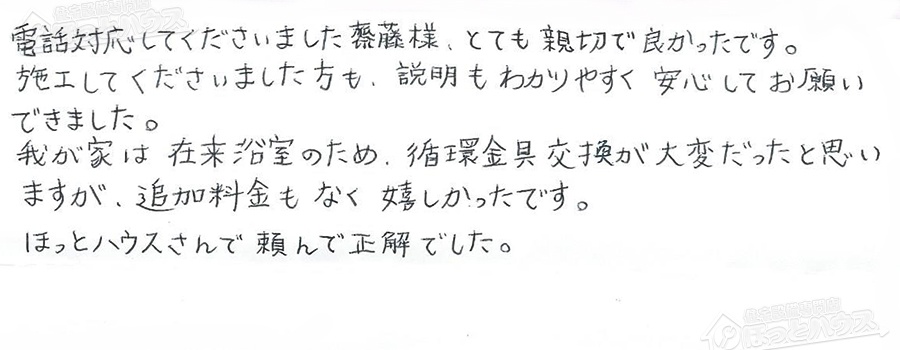 電話対応してくださいました齋藤様、とても親切で良かったです。
施工してくださいました方も、説明もわかりやすく安心してお願い
できました。
我が家は在来浴室のため、循環金具交換が大変だったと思い
ますが、追加料金もなく嬉しかったです。
ほっとハウスさんで頼んで正解でした。
ほっとハウス